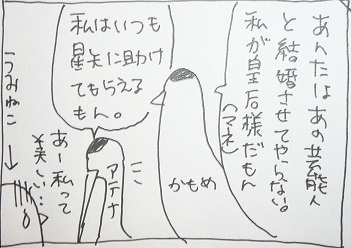 あんたはあの芸能人
と結婚させてやらない。
私が皇后様だもん
(マネ)
かもめ
私はいつも
星矢に助け
てもらえる
もん。
アテナ
あー私って
美しい…
うみねこ